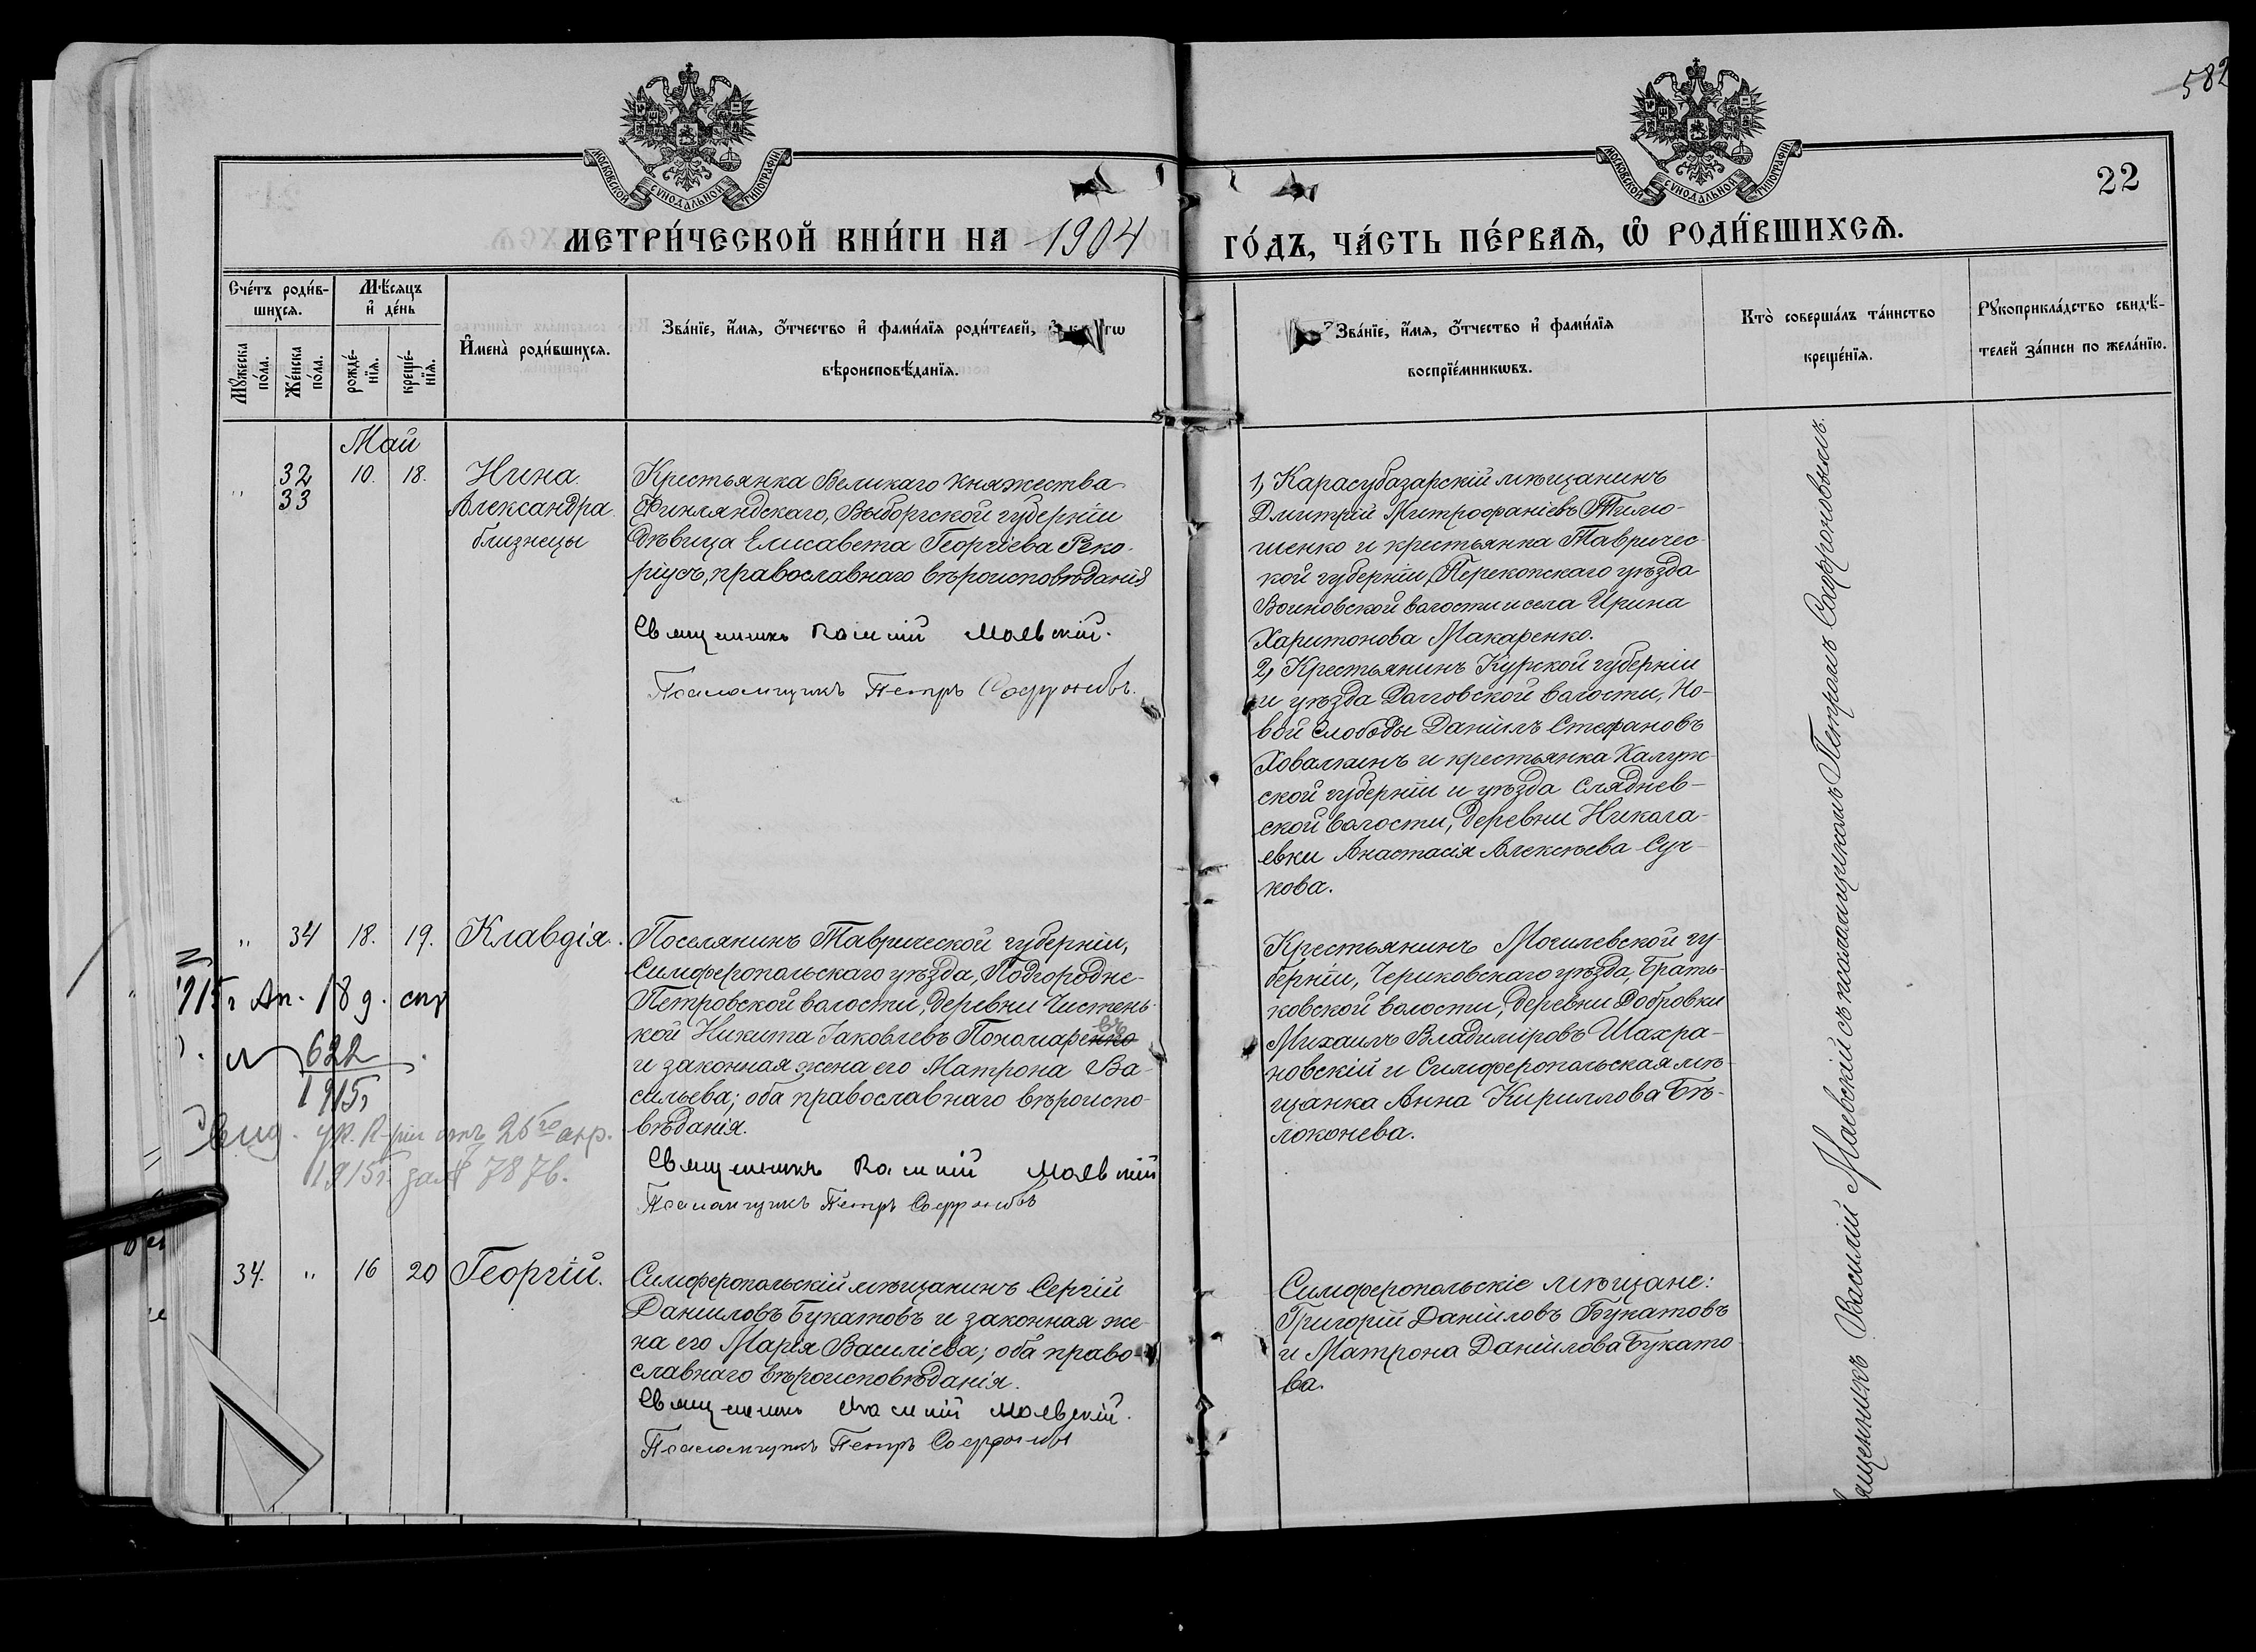 582
22
МОСКОВСКОЙ СѴНОДАЛЬНОЙ ТИПОГРАФІИ
МОСКОВСКОЙ СѴНОДАЛЬНОЙ ТИПОГРАФІИ
МЕТРИ́ЧЕСКОЙ КНИ́ГИ НА 1904
ГО́ДЪ, ЧА́СТЬ ПЕ́РВАѦ, Ѡ҆ РОДИ́ВШИХСѦ.
Сче́тъ роди́в-
шихсѧ.
Мꙋ́жеска
по́ла.
Же́нска
по́ла.
Мѣ́сѧцъ
и҆ де́нь
рожде́-
нїѧ.
креще́-
нїѧ.
И҆мена̀ роди́вшихсѧ.
Зва́нїе, и҆́мѧ, ѻ҆́тчество и҆ фами́лїѧ роди́телей,
вѣроисповѣ́данїѧ.
Зва́нїе, и҆́мѧ, ѻ҆́тчество и҆ фами́лїѧ
воспрїе́мникѡвъ.
Кто̀ соверша́лъ та́инство
креще́нїѧ.
Рꙋкоприкла́дство свидѣ́-
телей за́писи по жела́нїю.
Май
" 32 10. 18. Нина.
33 Александра.
близнецы
Крестьянка Великаго Княжества
Финляндскаго, Выборгской губерніи
дѣвица Елисавета Георгіева Реко-
ріусъ, православнаго вѣроисповѣданія
Священникъ Василій Маевскій.
Псаломщикъ Петръ Софроновъ.
1, Карасубазарскій мѣщанинъ
Дмитрій Митрофаніевъ Тимо-
шенко и крестьянка Тавричес-
кой губерніи, Перекопскаго уѣзда
Воиновской волости и села Ирина
Харитонова Макаренко.
2, Крестьянинъ Курской губерніи
и уѣзда Долговской волости, Но-
вой Слободы Даніилъ Стефановъ
Ховалкинъ и крестьянка Калуж-
ской губерніи и уѣзда Сляднев-
ской волости, деревни Никола-
евки Анастасія Алексѣева Суч-
кова.
" 34 18. 19. Клавдія.
Поселянинъ Таврической губерніи,
Симферопольскаго уѣзда, Подгородне-
Петровской волости, деревни Чистень-
кой Никита Іаковлевъ Пономаренко въ
и законная жена его Матрона Ва-
сильева; оба православнаго вѣроиспо-
вѣданія.
Священникъ Василій Маевскій
Псаломщикъ Петръ Софроновъ
Крестьянинъ Могилевской гу-
берніи, Чериковскаго уѣзда, Брать-
ковской волости, деревни Добровки
Михаилъ Владиміровъ Шахра-
новскій и Симферопольская мѣ-
щанка Анна Кириллова Бѣ-
локонева.
1915г Ап. 18 д.
622
1915г
26го апр.
1915г. за № 7876.
34. " 16 20 Георгій.
Симферопольскій мѣщанинъ Сергій
Данииловъ Букатовъ и законная же-
на его Марія Василіева; оба право-
славнаго вѣроисповѣданія.
Священникъ Василій Маевскій.
Псаломщикъ Петръ Софроновъ
Симферопольскіе мѣщане:
Григорій Даніиловъ Букатовъ
и Матрона Даніилова Букато-
ва.
Священникъ Василій Маевскій съ псаломщикомъ Петромъ Софроновымъ.